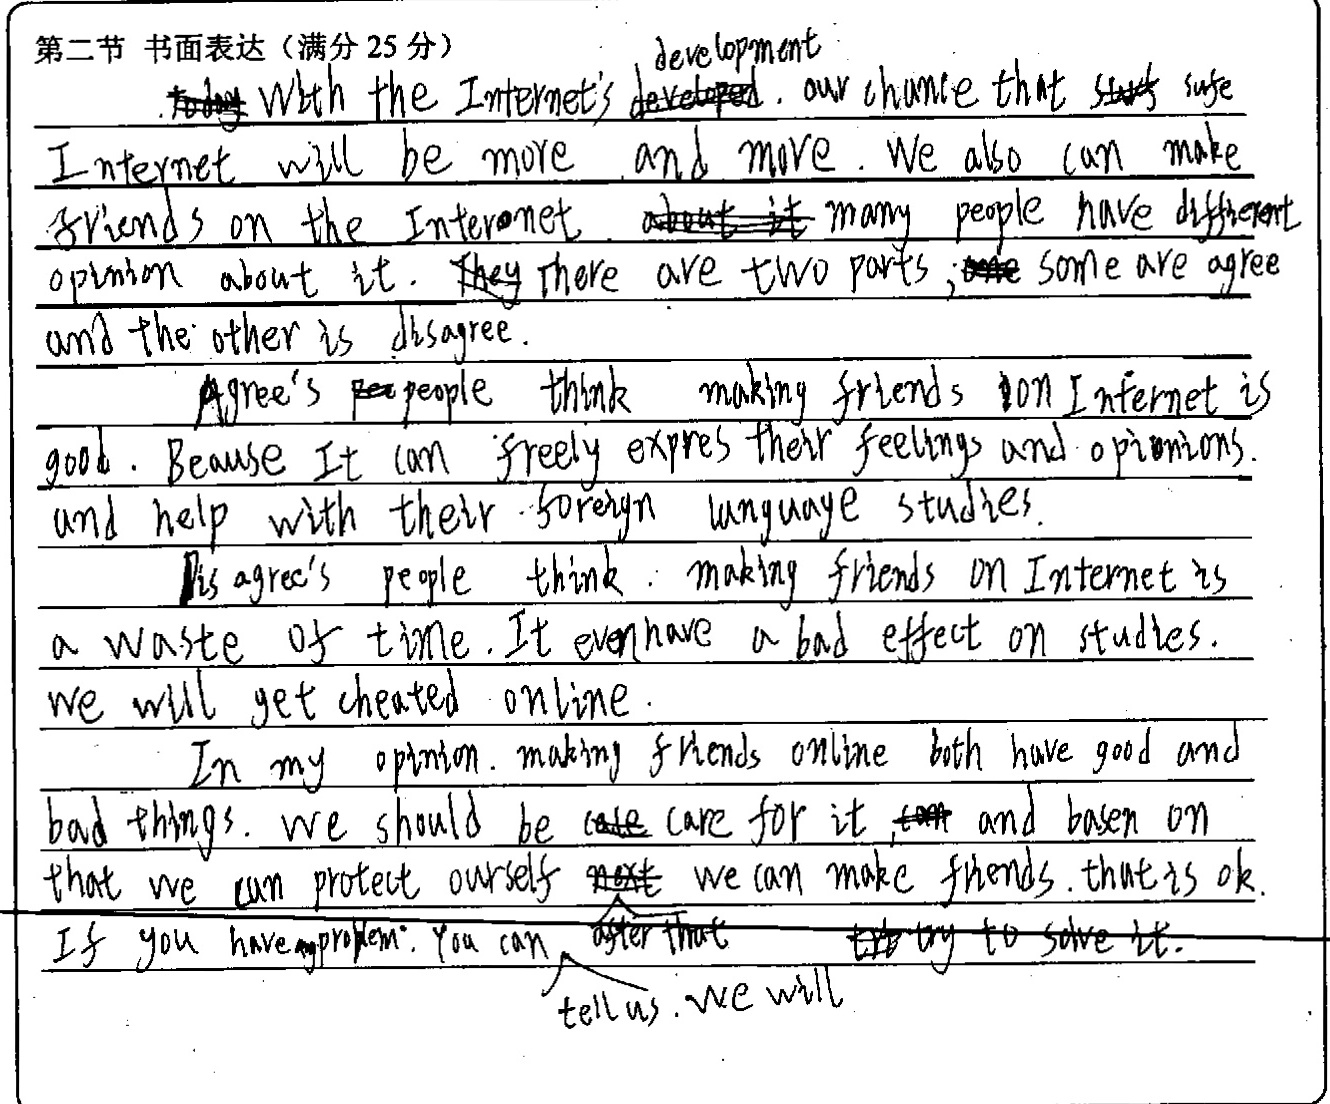 第二节 书面表达（满分 25 分）
With the Internet's development. our chance that sufe
Internet will be more and more. We also can make
friends on the Internet. many people have different
opinion about it. There are two parts, some are agree
and the other is disagree.
Agree's people think making friends on Internet is
good. Beause It can freely expres their feelings and opinions.
and help with their foreign language studies.
Disagree's people think. making friends on Internet is
a waste of time. It even have a bad effect on studies.
we will get cheated online.
In my opinion. making friends online both have good and
bad things. we should be care for it, and basen on
that we can protect ourself after that we can make friends. that is ok.
If you have any problem. You can tell us. We will try to solve it.